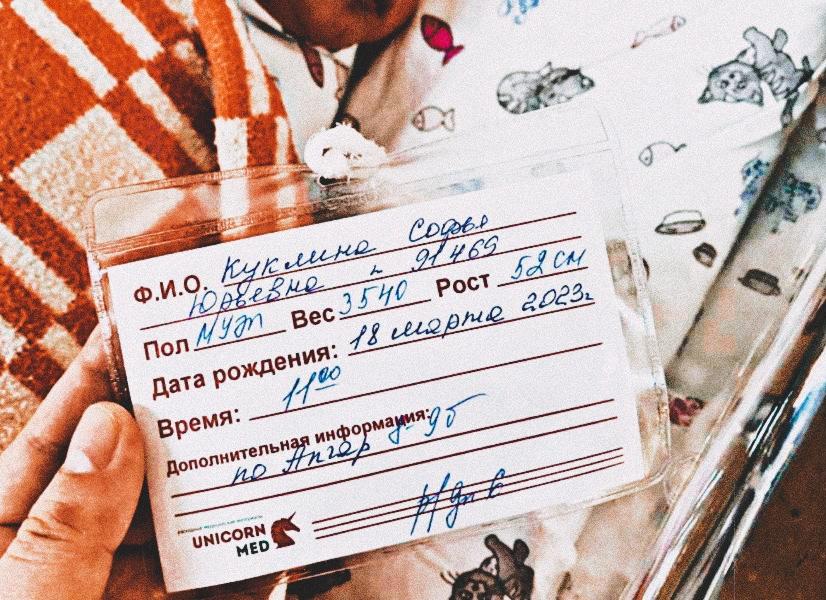 Ф.И.О. Куклина Софья
Юрьевна 91469
Пол муж Вес 3540 Рост 52 см
Дата рождения: 18 марта 2023г
Время: 11 00
Дополнительная информация:
по Апгар
UNICORN
MED